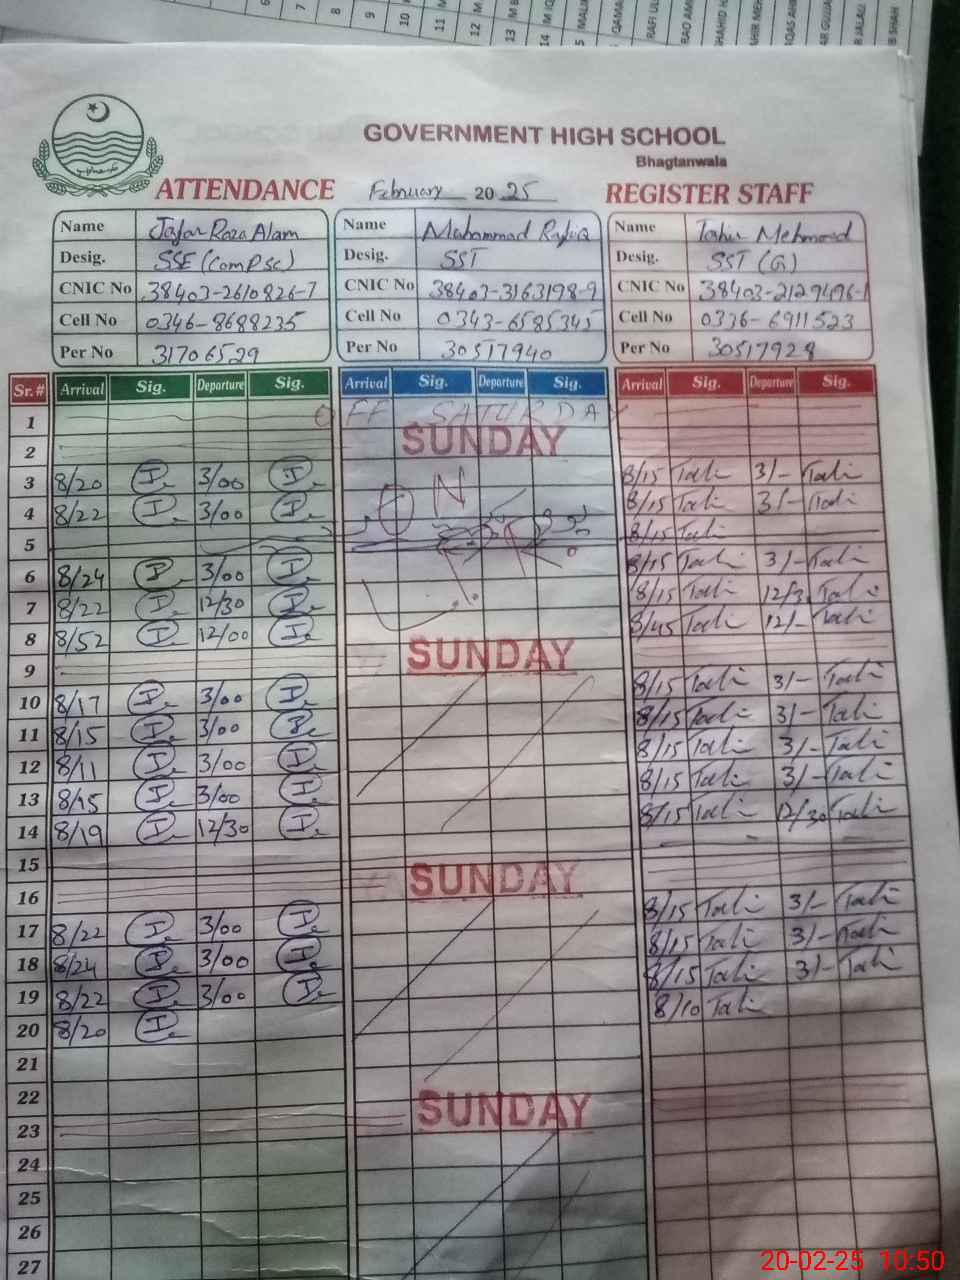 6 7 8 9 10 11 12 13 14
GOVERNMENT HIGH SCHOOL
Bhagtanwala
ATTENDANCE February 2025 REGISTER STAFF
Name Jafar Raza Alam Name Muhammad Rafiq Name Tahir Mehmood
Desig. SSE (Comp Sc) Desig. SST Desig. SST (G)
CNIC No 38403-2610826-7 CNIC No 38403-3163198-9 CNIC No 38403-2129496-1
Cell No 0346-8688235 Cell No 0343-6585345 Cell No 0336-6911523
Per No 31706529 Per No 30517940 Per No 30517928
Sr.# Arrival Sig. Departure Sig. Arrival Sig. Departure Sig. Arrival Sig. Departure Sig.
1 OFF SATURDAY
2 SUNDAY
3 8/20 3/00 8/15 Tahi 3/- Tahi
4 8/22 3/00 8/15 Tahi 3/- Tahi
5 8/15 Tahi
6 8/24 3/00 8/15 Tahi 3/- Tahi
7 8/22 12/30 8/15 Tahi 12/30 Tahi
8 8/52 12/00 8/45 Tahi 12/- Tahi
9 SUNDAY
10 8/17 3/00 8/15 Tahi 3/- Tahi
11 8/15 3/00 8/15 Tahi 3/- Tahi
12 8/11 3/00 8/15 Tahi 3/- Tahi
13 8/15 3/00 8/15 Tahi 3/- Tahi
14 8/19 12/30 8/15 Tahi 12/30 Tahi
15
16 SUNDAY
17 8/22 3/00 8/15 Tahi 3/- Tahi
18 8/24 3/00 8/15 Tahi 3/- Tahi
19 8/22 3/00 8/15 Tahi 3/- Tahi
20 8/20 8/10 Tahi
21
22
23 SUNDAY
24
25
26
27
20-02-25 10:50